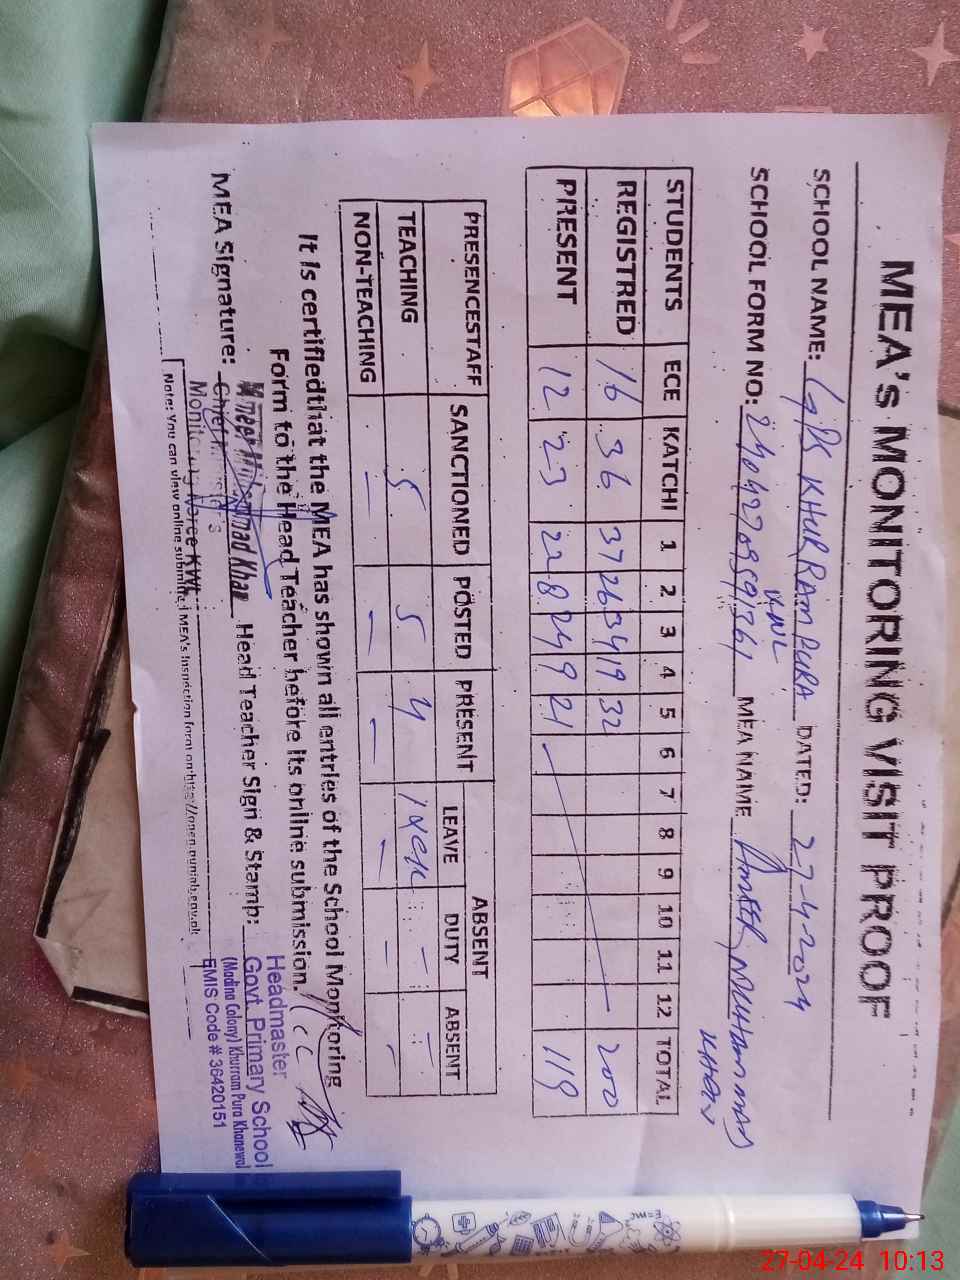 MEA's MONITORING VISIT PROOF
SCHOOL NAME: GPS KHURRAM PURA KWL DATED: 27-4-2024
SCHOOL FORM NO: MEA NAME AMEER MUHAMMAD KHAN
STUDENTS ECE KATCHI 1 2 3 4 5 6 7 8 9 10 11 12 TOTAL
REGISTRED 16 36 37 26 34 19 32 200
PRESENT 12 23 22 8 24 9 21 119
PRESENCESTAFF SANCTIONED POSTED PRESENT ABSENT
LEAVE DUTY ABSENT
TEACHING 5 5 4 1 - -
NON-TEACHING - - - - - -
It is certifiedthat the MEA has shown all entries of the School Monitoring
Form to the Head Teacher before its online submission.
MEA Signature: Ameer Muhammad Khan Head Teacher Sign & Stamp:
Chief Minister's
Monitoring Force KWL
Headmaster
Govt. Primary School
(Madina Colony) Khurram Pura Khanewal
EMIS Code # 36420151
Note: You can view online submitted MEA's Inspection form on https://open.punjab.gov.pk
27-04-24 10:13